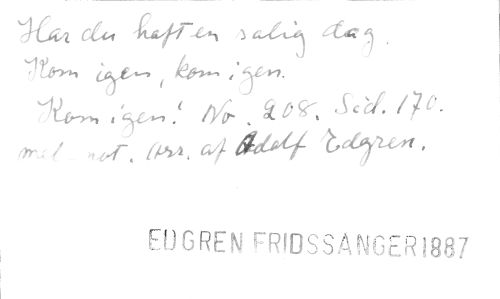 Har du haft en salig dag.
Kom igen, kom igen.
Kom igen! No. 208. Sid. 170.
mel. not. Arr. af Adolf Edgren.
EDGREN FRIDSSANGER 1887